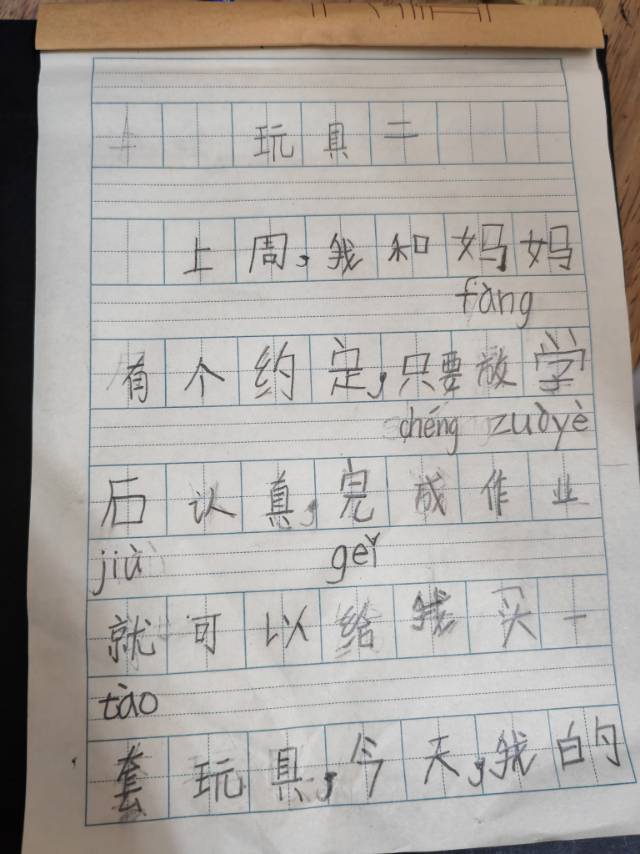 玩具二
上周，我和妈妈
fàng
有个约定，只要放学
chéng zuòyè
后认真，完成作业
jiù gěi
就可以给我买一
tào
套玩具，今天，我的